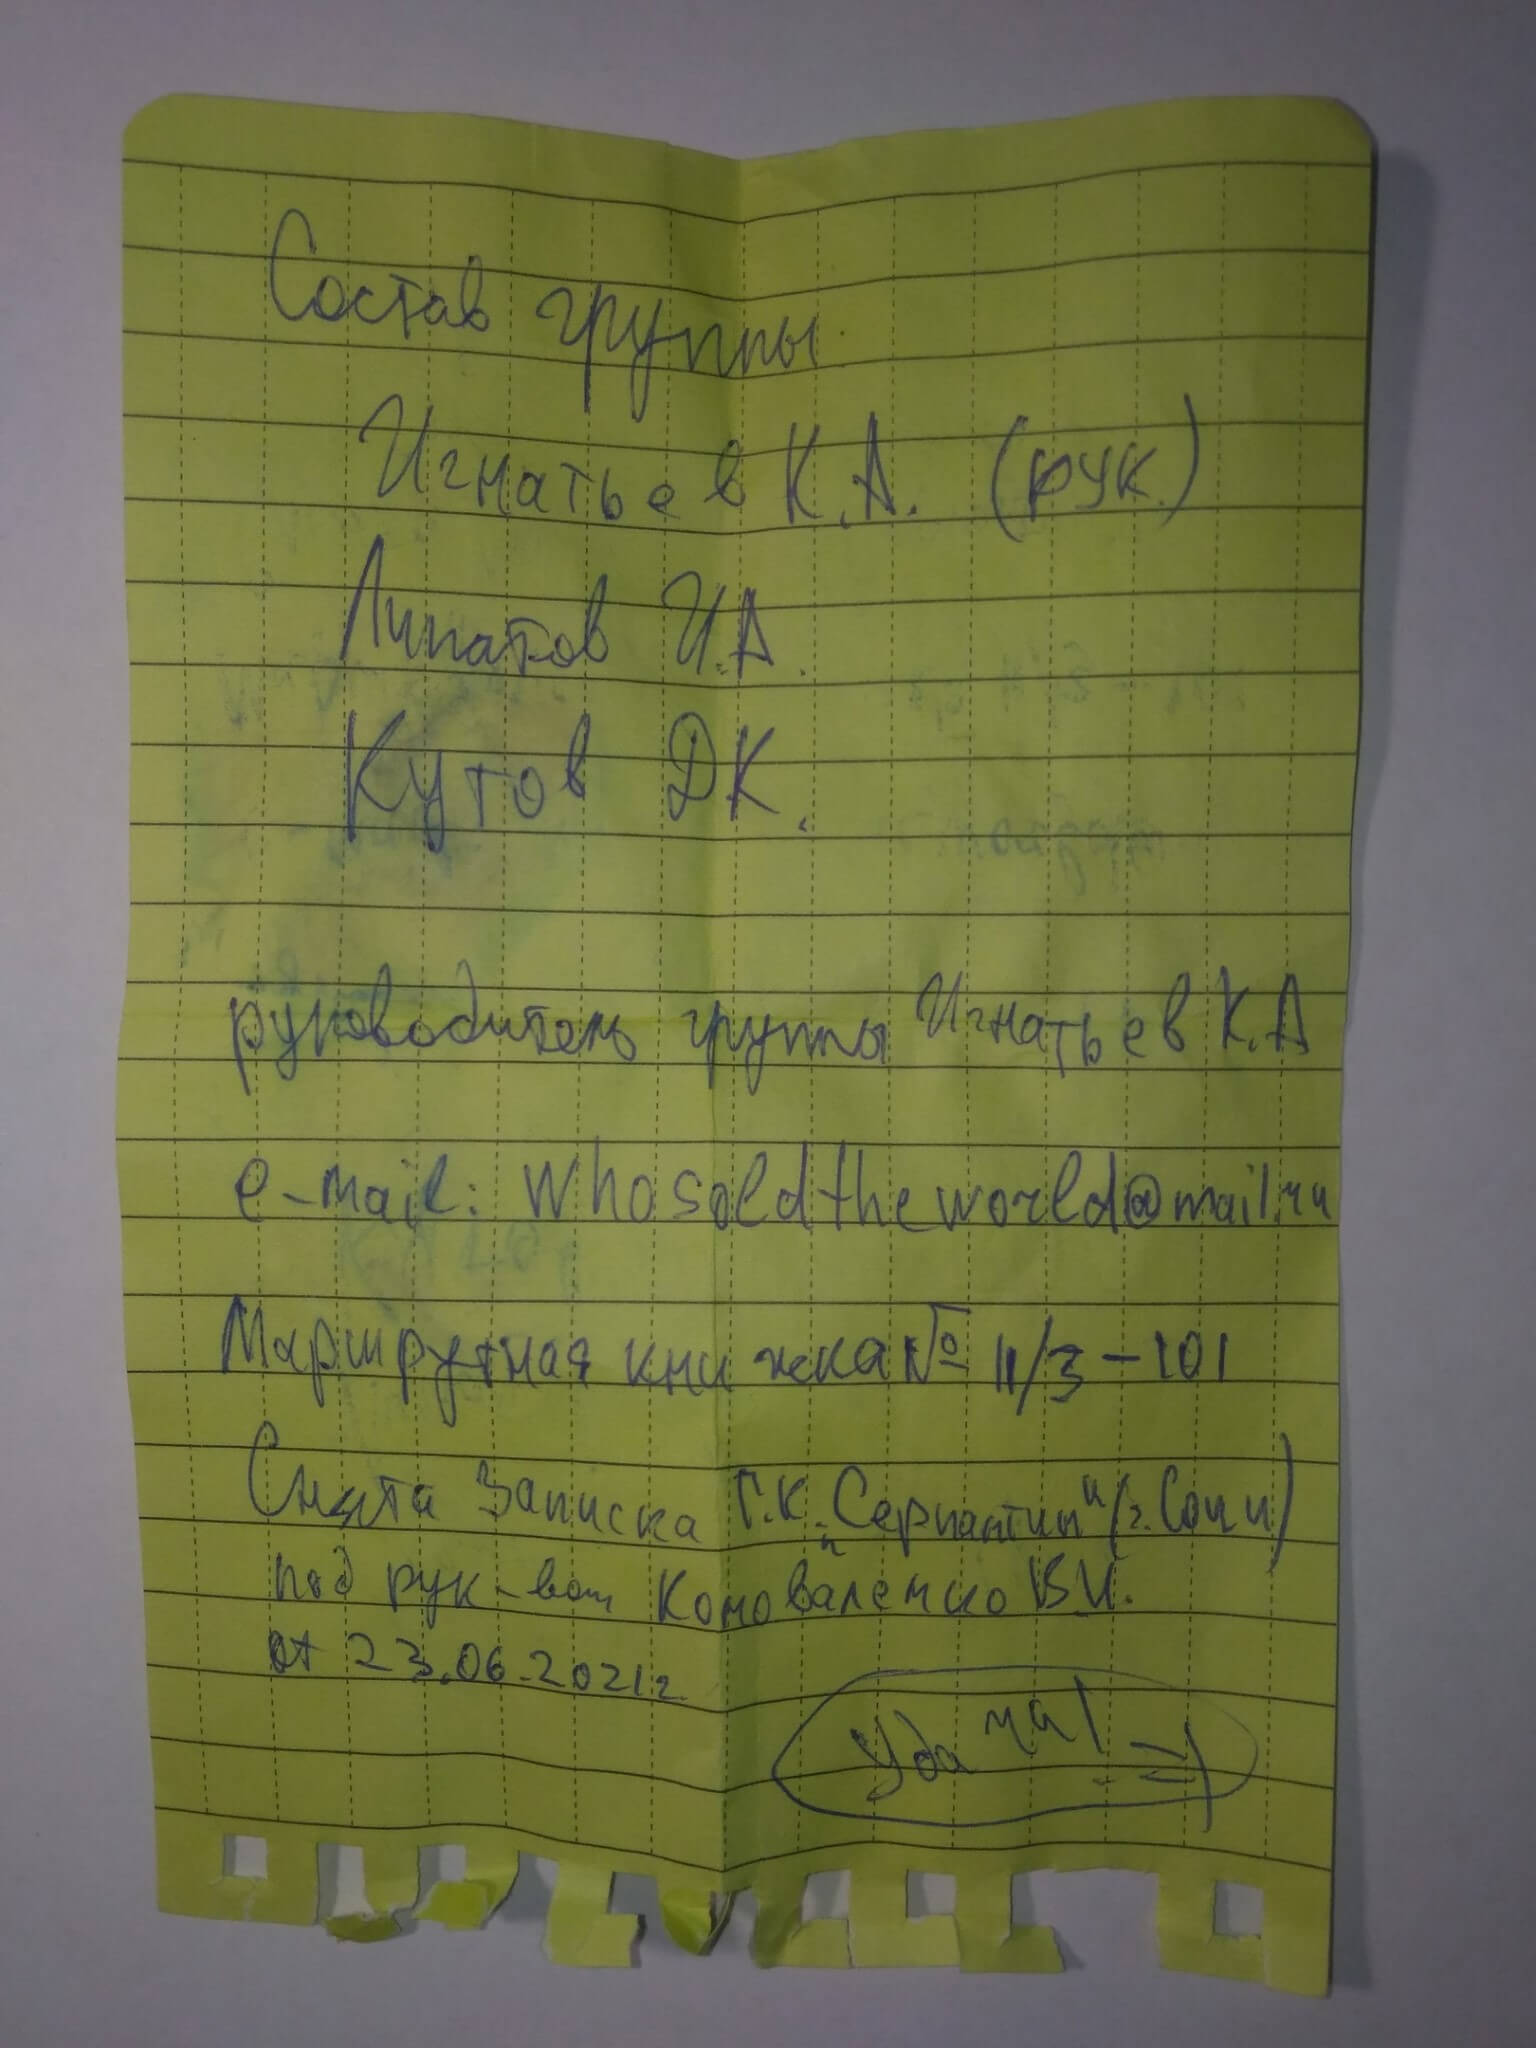 Состав группы
Игнатьев К.А. (рук.)
Липатов И.А.
Кутов Д.К.
руководитель группы Игнатьев К.А
e-mail: whosoldtheworld@mail.ru
Маршрутная книжка № 11/3-101
Снята записка Г.К. "Серпантин" (г. Сочи)
под рук-вом Коноваленко В.И.
от 23.06.2021г.
Удачи! =)